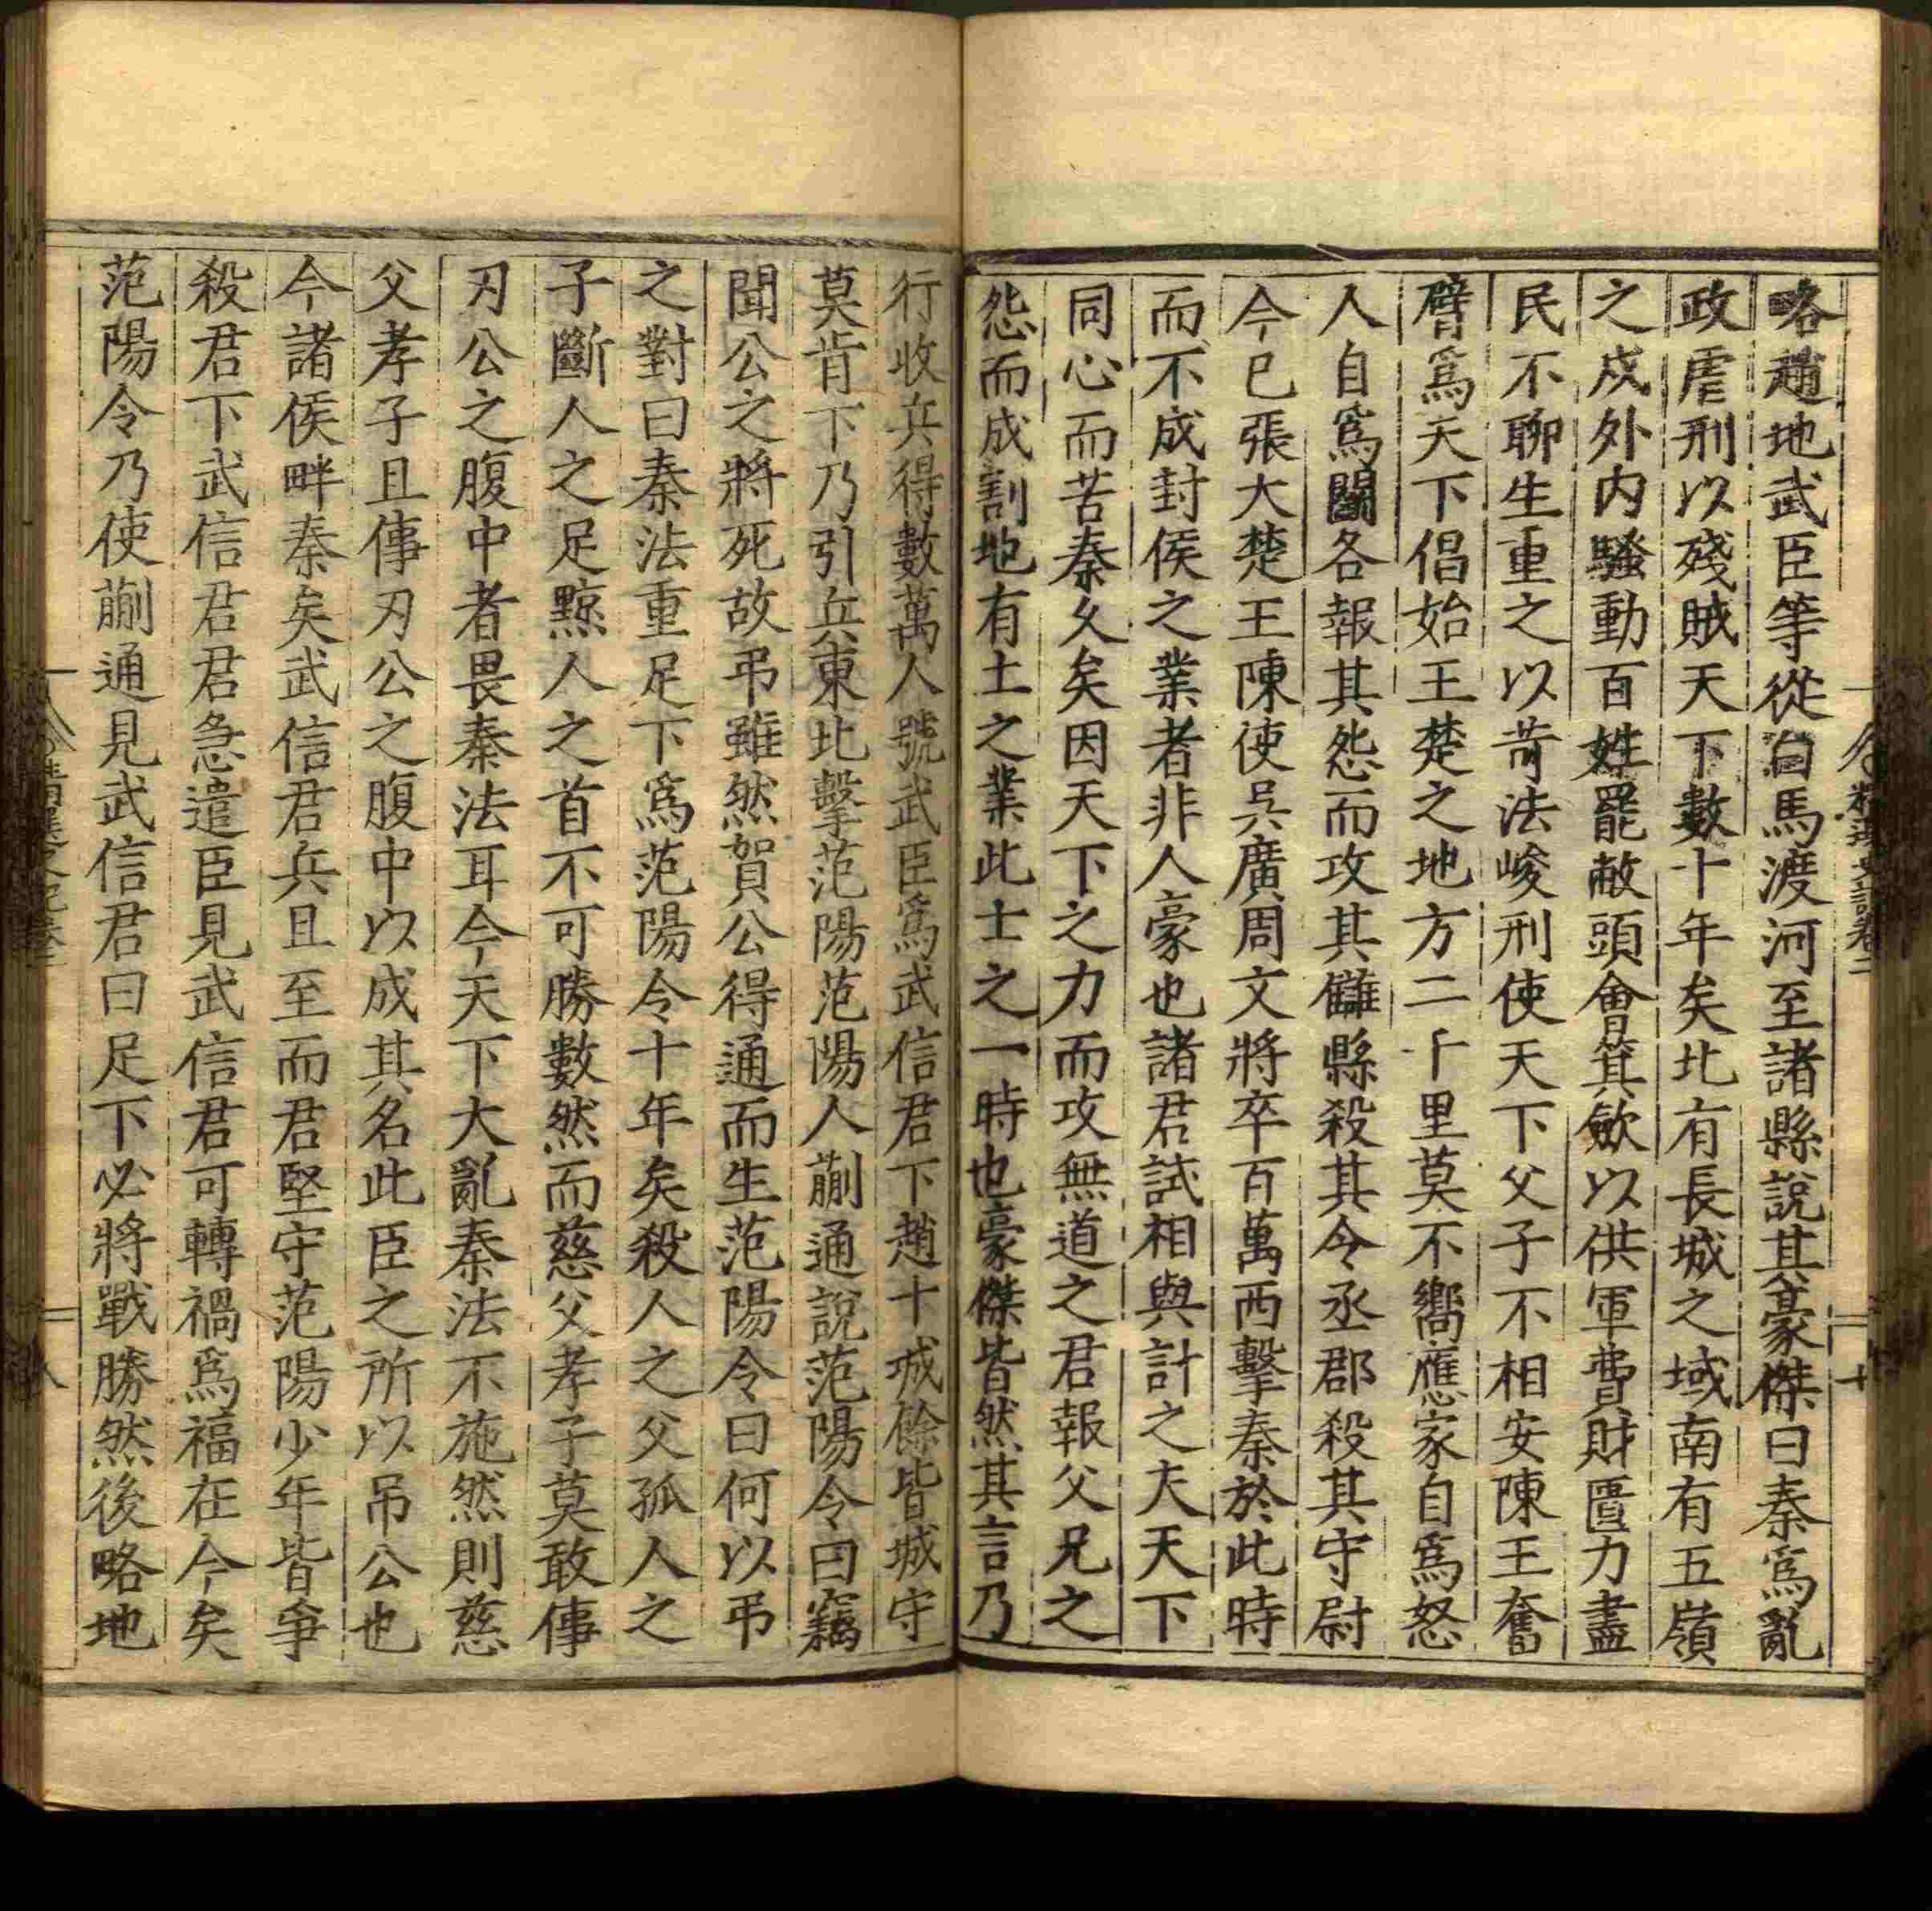 略趙地武臣等從白馬渡河至諸縣說其豪傑曰秦爲亂
政虐刑以殘賊天下數十年矣北有長城之域南有五嶺
之戍外内騷動百姓罷敝頭會箕歛以供軍費財匱力盡
民不聊生重之以苛法峻刑使天下父子不相安陳王奮
臂爲天下倡始王楚之地方二千里莫不嚮應家自爲怒
人自爲鬬各報其怨而攻其讎縣殺其令丞郡殺其守尉
今已張大楚王陳使吳廣周文將卒百萬西擊秦於此時
而不成封侯之業者非人豪也諸君試相與計之夫天下
同心而苦秦久矣因天下之力而攻無道之君報父兄之
怨而成割地有土之業此士之一時也豪傑皆然其言乃
行收兵得數萬人號武臣爲武信君下趙十城餘皆城守
莫肯下乃引兵東北擊范陽范陽人蒯通說范陽令曰竊
聞公之將死故弔雖然賀公得通而生范陽令曰何以弔
之對曰秦法重足下爲范陽令十年矣殺人之父孤人之
子斷人之足黥人之首不可勝數然而慈父孝子莫敢倳
刃公之腹中者畏秦法耳今天下大亂秦法不施然則慈
父孝子且倳刃公之腹中以成其名此臣之所以吊公也
今諸侯畔秦矣武信君兵且至而君堅守范陽少年皆爭
殺君下武信君君急遣臣見武信君可轉禍爲福在今矣
范陽令乃使蒯通見武信君曰足下必將戰勝然後略地